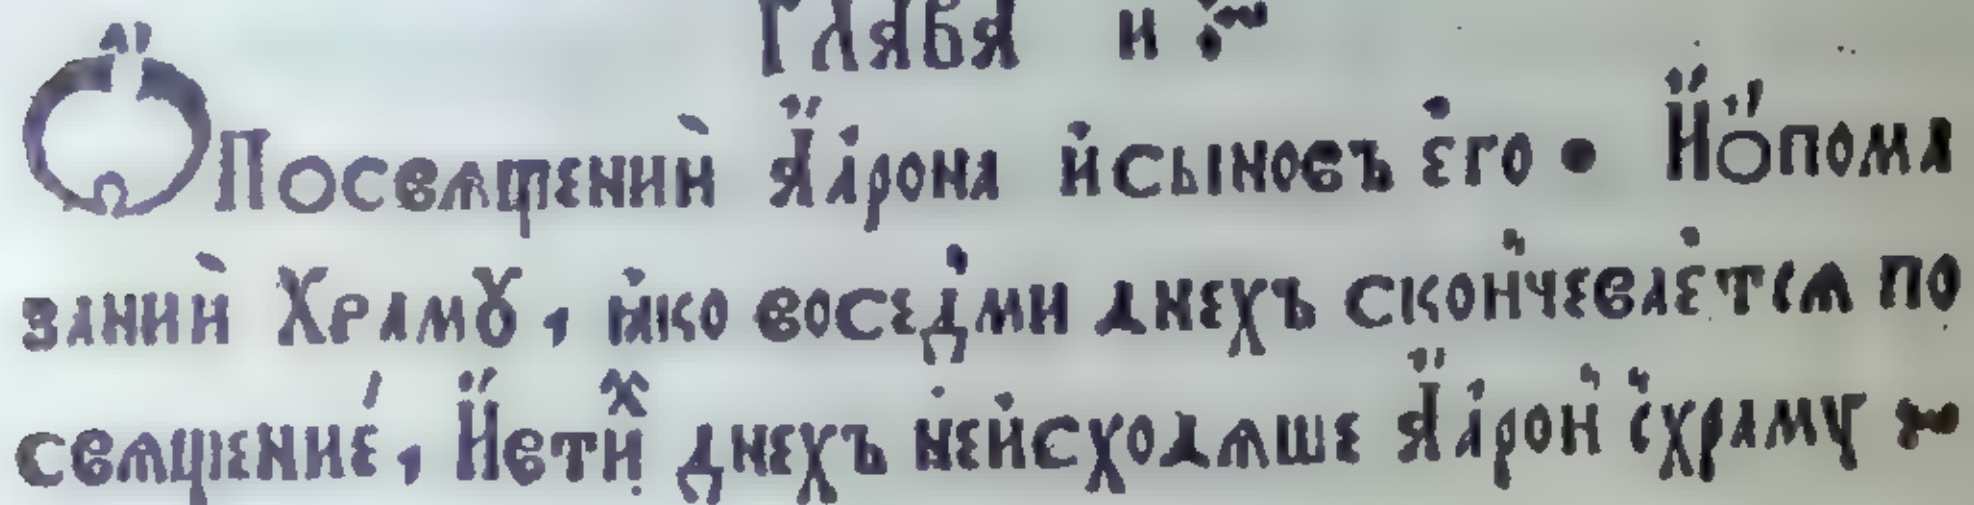 ГЛАВА и҃
Ѡ Посвѧщении Аарона исыновъ его · Иопома
зании Храмꙋ, ꙗко воседми днехъ скончеваетсѧ по
свѧщение, Ивтых днехъ неисходѧше Аарон исхраму